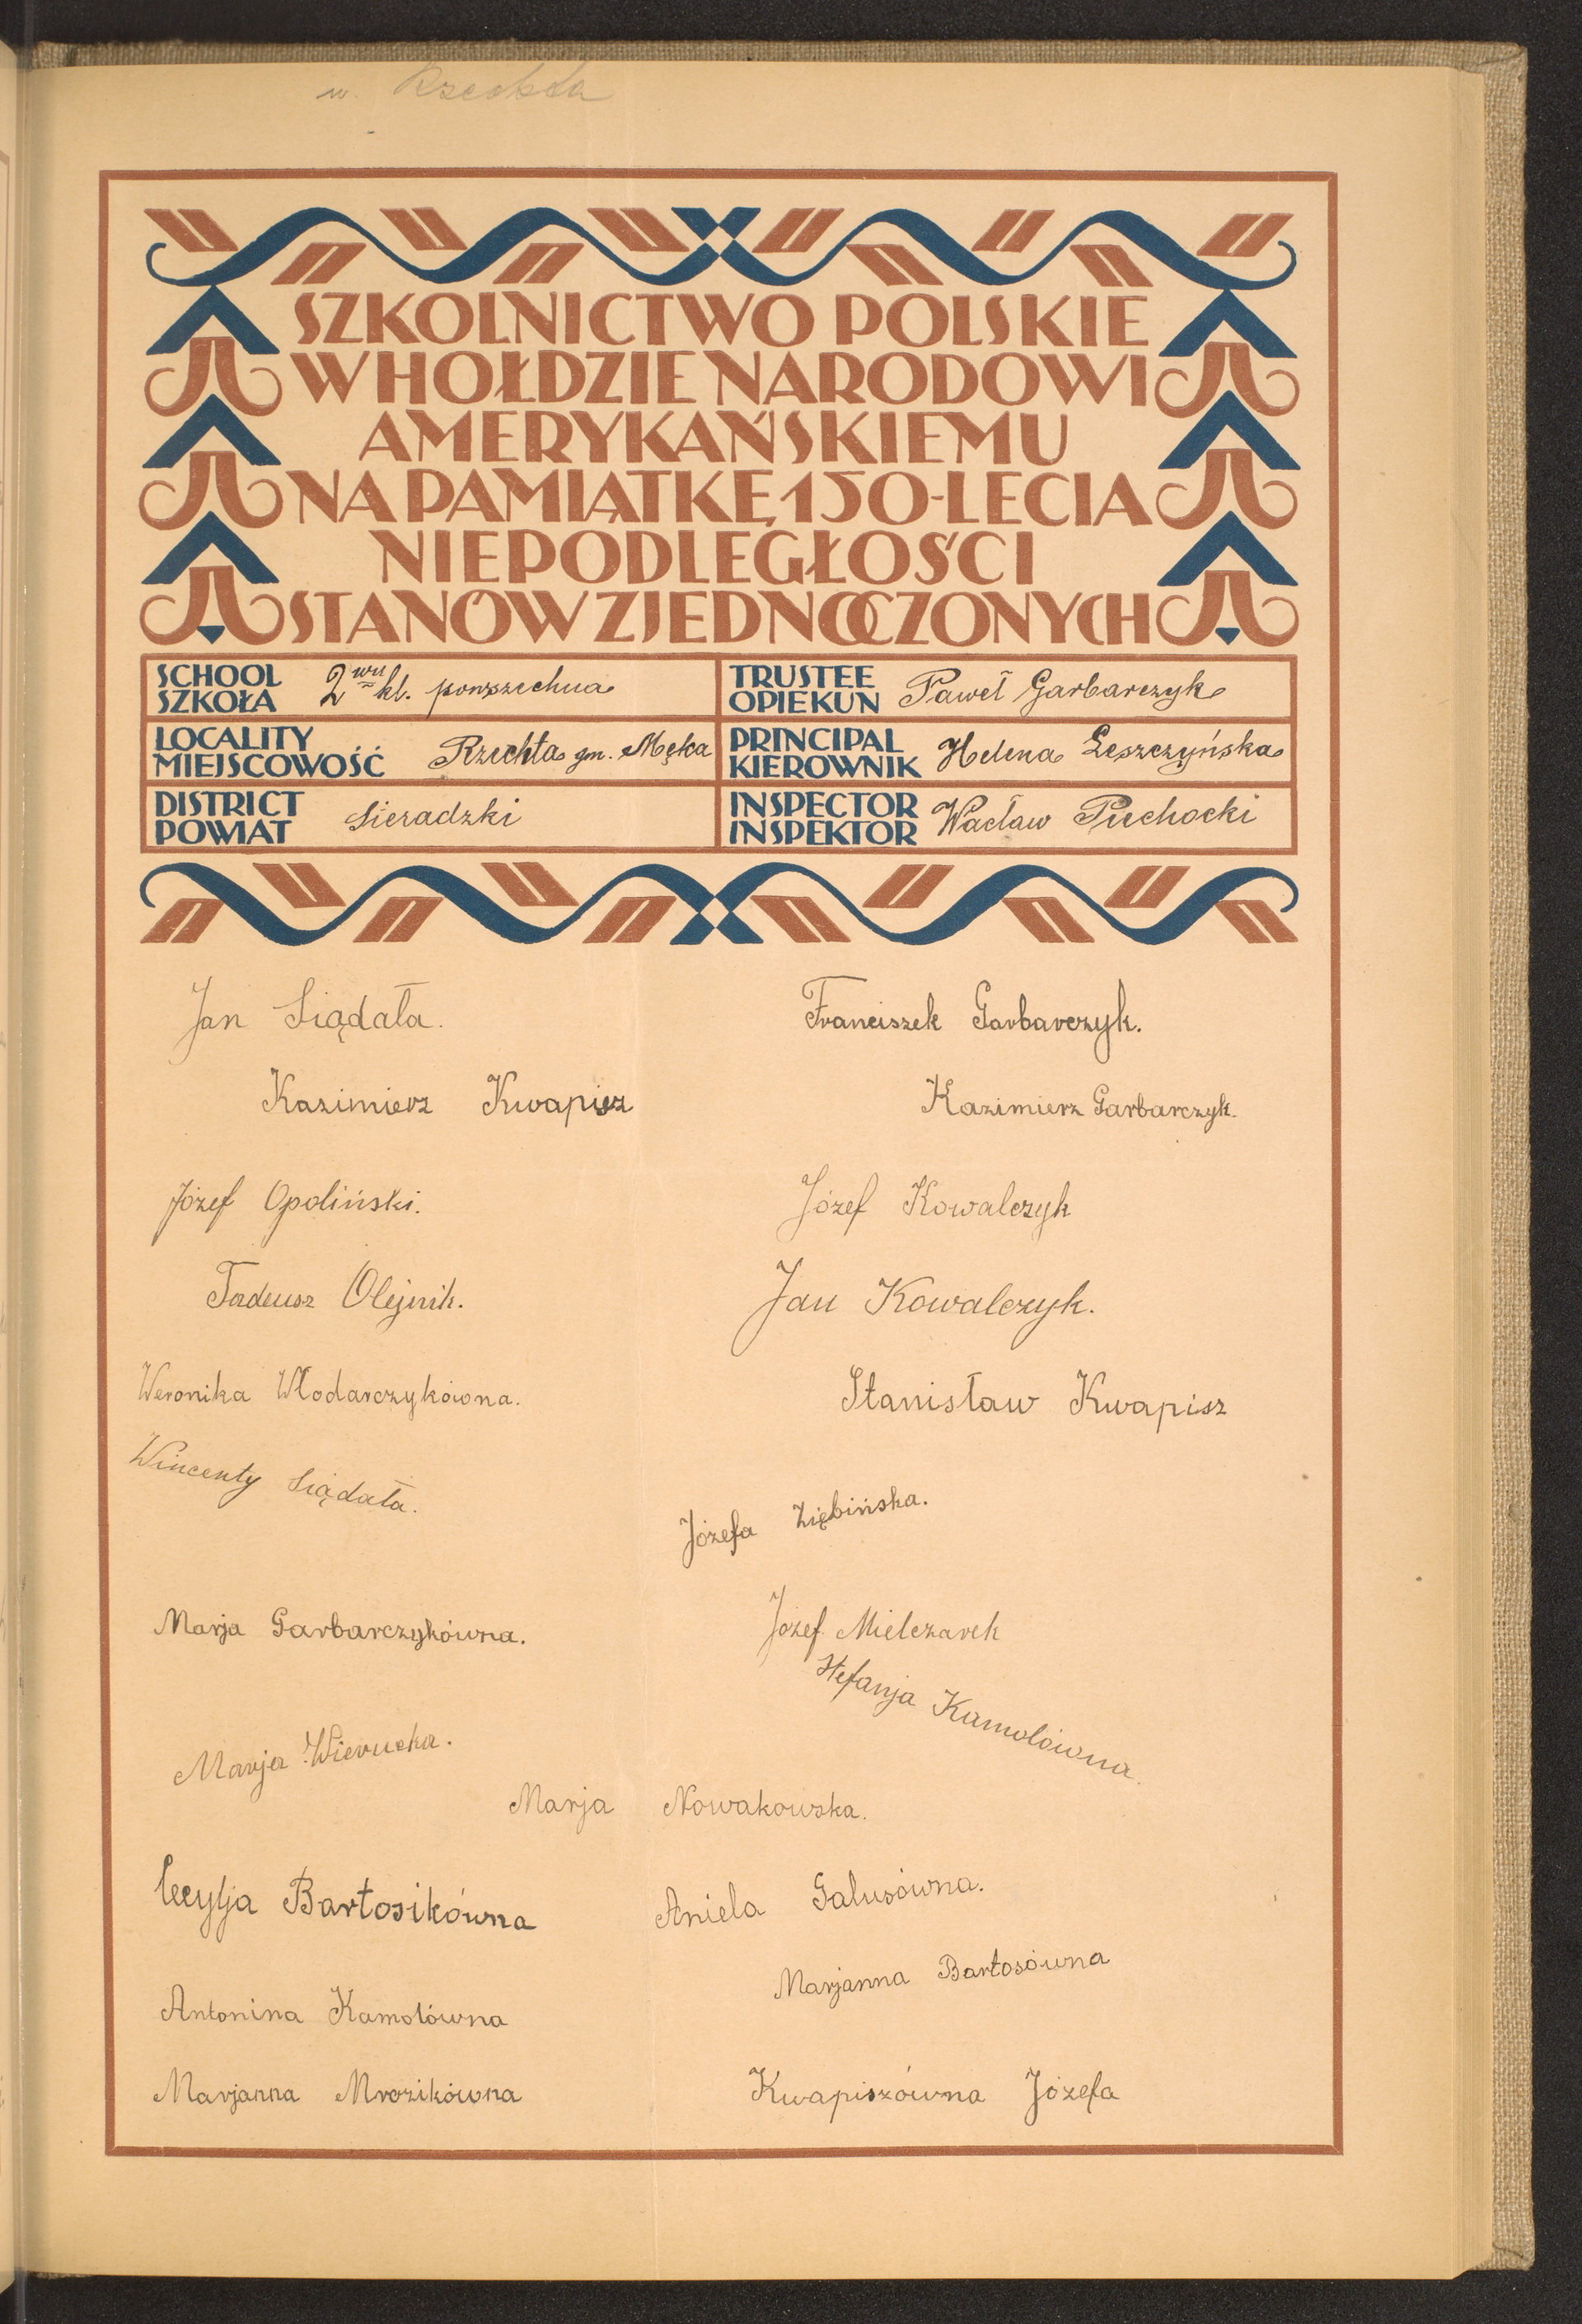 w. Rzechta
SZKOLNICTWO POLSKIE
W HOŁDZIE NARODOWI
AMERYKAŃSKIEMU
NA PAMIĄTKĘ 150-LECIA
NIEPODLEGŁOŚCI
STANÓW ZJEDNOCZONYCH
SCHOOL
SZKOŁA 2wu kl. powszechna
TRUSTEE
OPIEKUN Paweł Garbarczyk
LOCALITY
MIEJSCOWOŚĆ Rzechta gm. Męka
PRINCIPAL
KIEROWNIK Helena Leszczyńska
DISTRICT
POWIAT Sieradzki
INSPECTOR
INSPEKTOR Wacław Puchocki
Jan Siądała.
Franciszek Garbarczyk.
Kazimierz Kwapisz
Kazimierz Garbarczyk.
Józef Opoliński.
Józef Kowalczyk
Tadeusz Olejnik.
Jan Kowalczyk.
Weronika Włodarczykówna.
Stanisław Kwapisz
Wincenty Siądała.
Józefa Ziębińska.
Marja Garbarczykówna.
Józef Mielczarek
Stefanja Kamolówna.
Marja Wierucka.
Marja Nowakowska.
Cecylja Bartosikówna
Aniela Galusówna.
Marjanna Bartosówna
Antonina Kamolówna
Marjanna Mrozikówna
Kwapiszówna Józefa